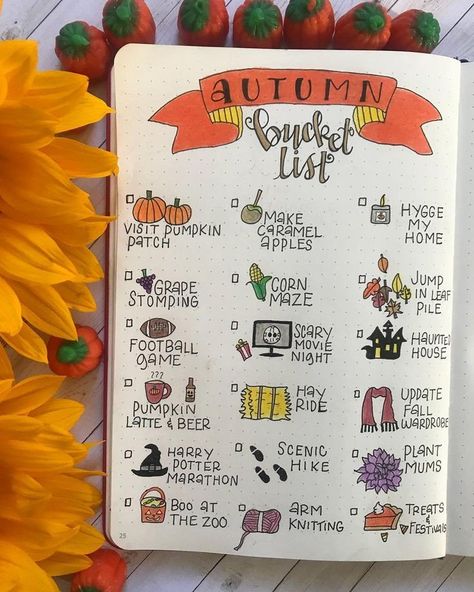 AUTUMN
bucket
list
VISIT PUMPKIN
PATCH
MAKE
CARAMEL
APPLES
HYGGE
MY
HOME
GRAPE
STOMPING
CORN
MAZE
JUMP
IN LEAF
PILE
FOOTBALL
GAME
SCARY
MOVIE
NIGHT
HAUNTED
HOUSE
???
PUMPKIN
LATTE & BEER
HAY
RIDE
UPDATE
FALL
WARDROBE
HARRY
POTTER
MARATHON
SCENIC
HIKE
PLANT
MUMS
BOO AT
THE ZOO
ARM
KNITTING
TREATS
&
FESTIVALS
25